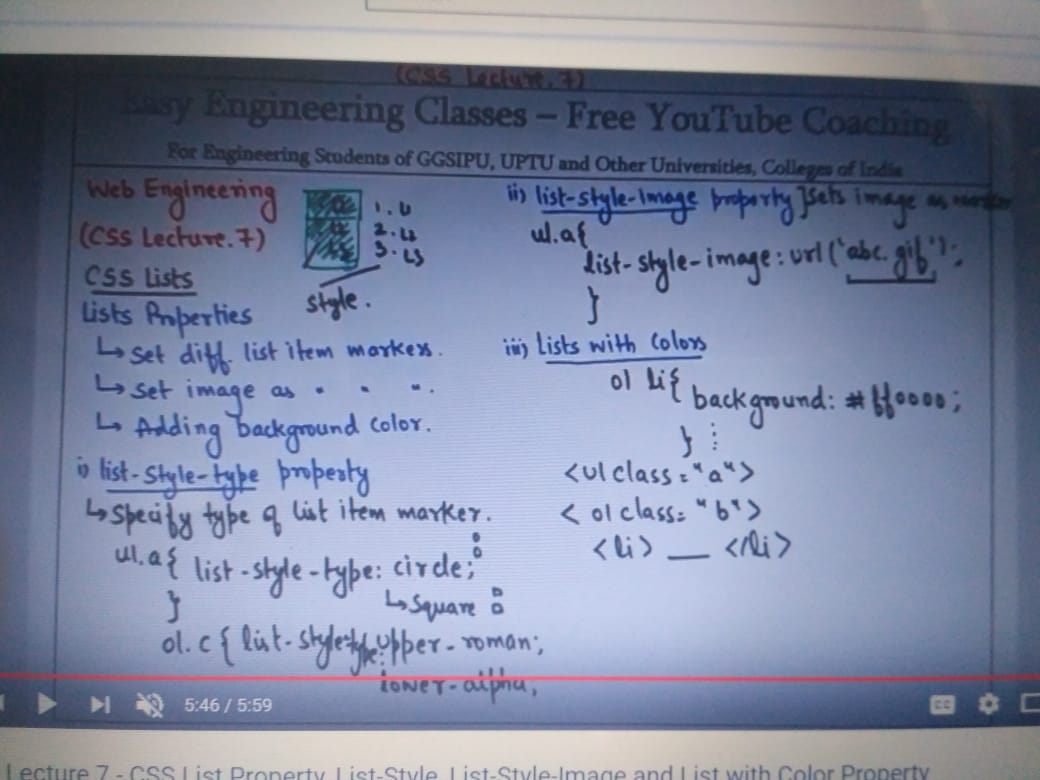 (CSS Lecture.7)
Easy Engineering Classes – Free YouTube Coaching
For Engineering Students of GGSIPU, UPTU and Other Universities, Colleges of India
Web Engineering
(CSS Lecture.7)
CSS Lists
1.
2.
3.
style.
Lists Properties
↳ Set diff. list item markers.
↳ Set image as " " ".
↳ Adding background color.
i) list-style-type property
↳ Specify type of list item marker.
ul.a{ list-style-type: circle;
}
↳ Square
ol.c{ list-style-type: upper-roman;
lower-alpha,
ii) list-style-image property ]sets image as marker
ul.a{
list-style-image: url('abc.gif');
}
iii) Lists with Colors
ol li{
background: #ff0000;
} ⋮
<ul class="a">
<ol class="b">
<li> __ </li>
5:46 / 5:59
CC
Lecture 7 - CSS List Property, List-Style, List-Style-Image and List with Color Property